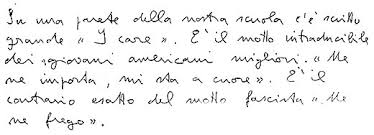 Su una parete della nostra scuola c'è scritto
grande « I care ». E' il motto intraducibile
dei giovani americani migliori. « Me
ne importa, mi sta a cuore ». E' il
contrario esatto del motto fascista « Me
ne frego ».